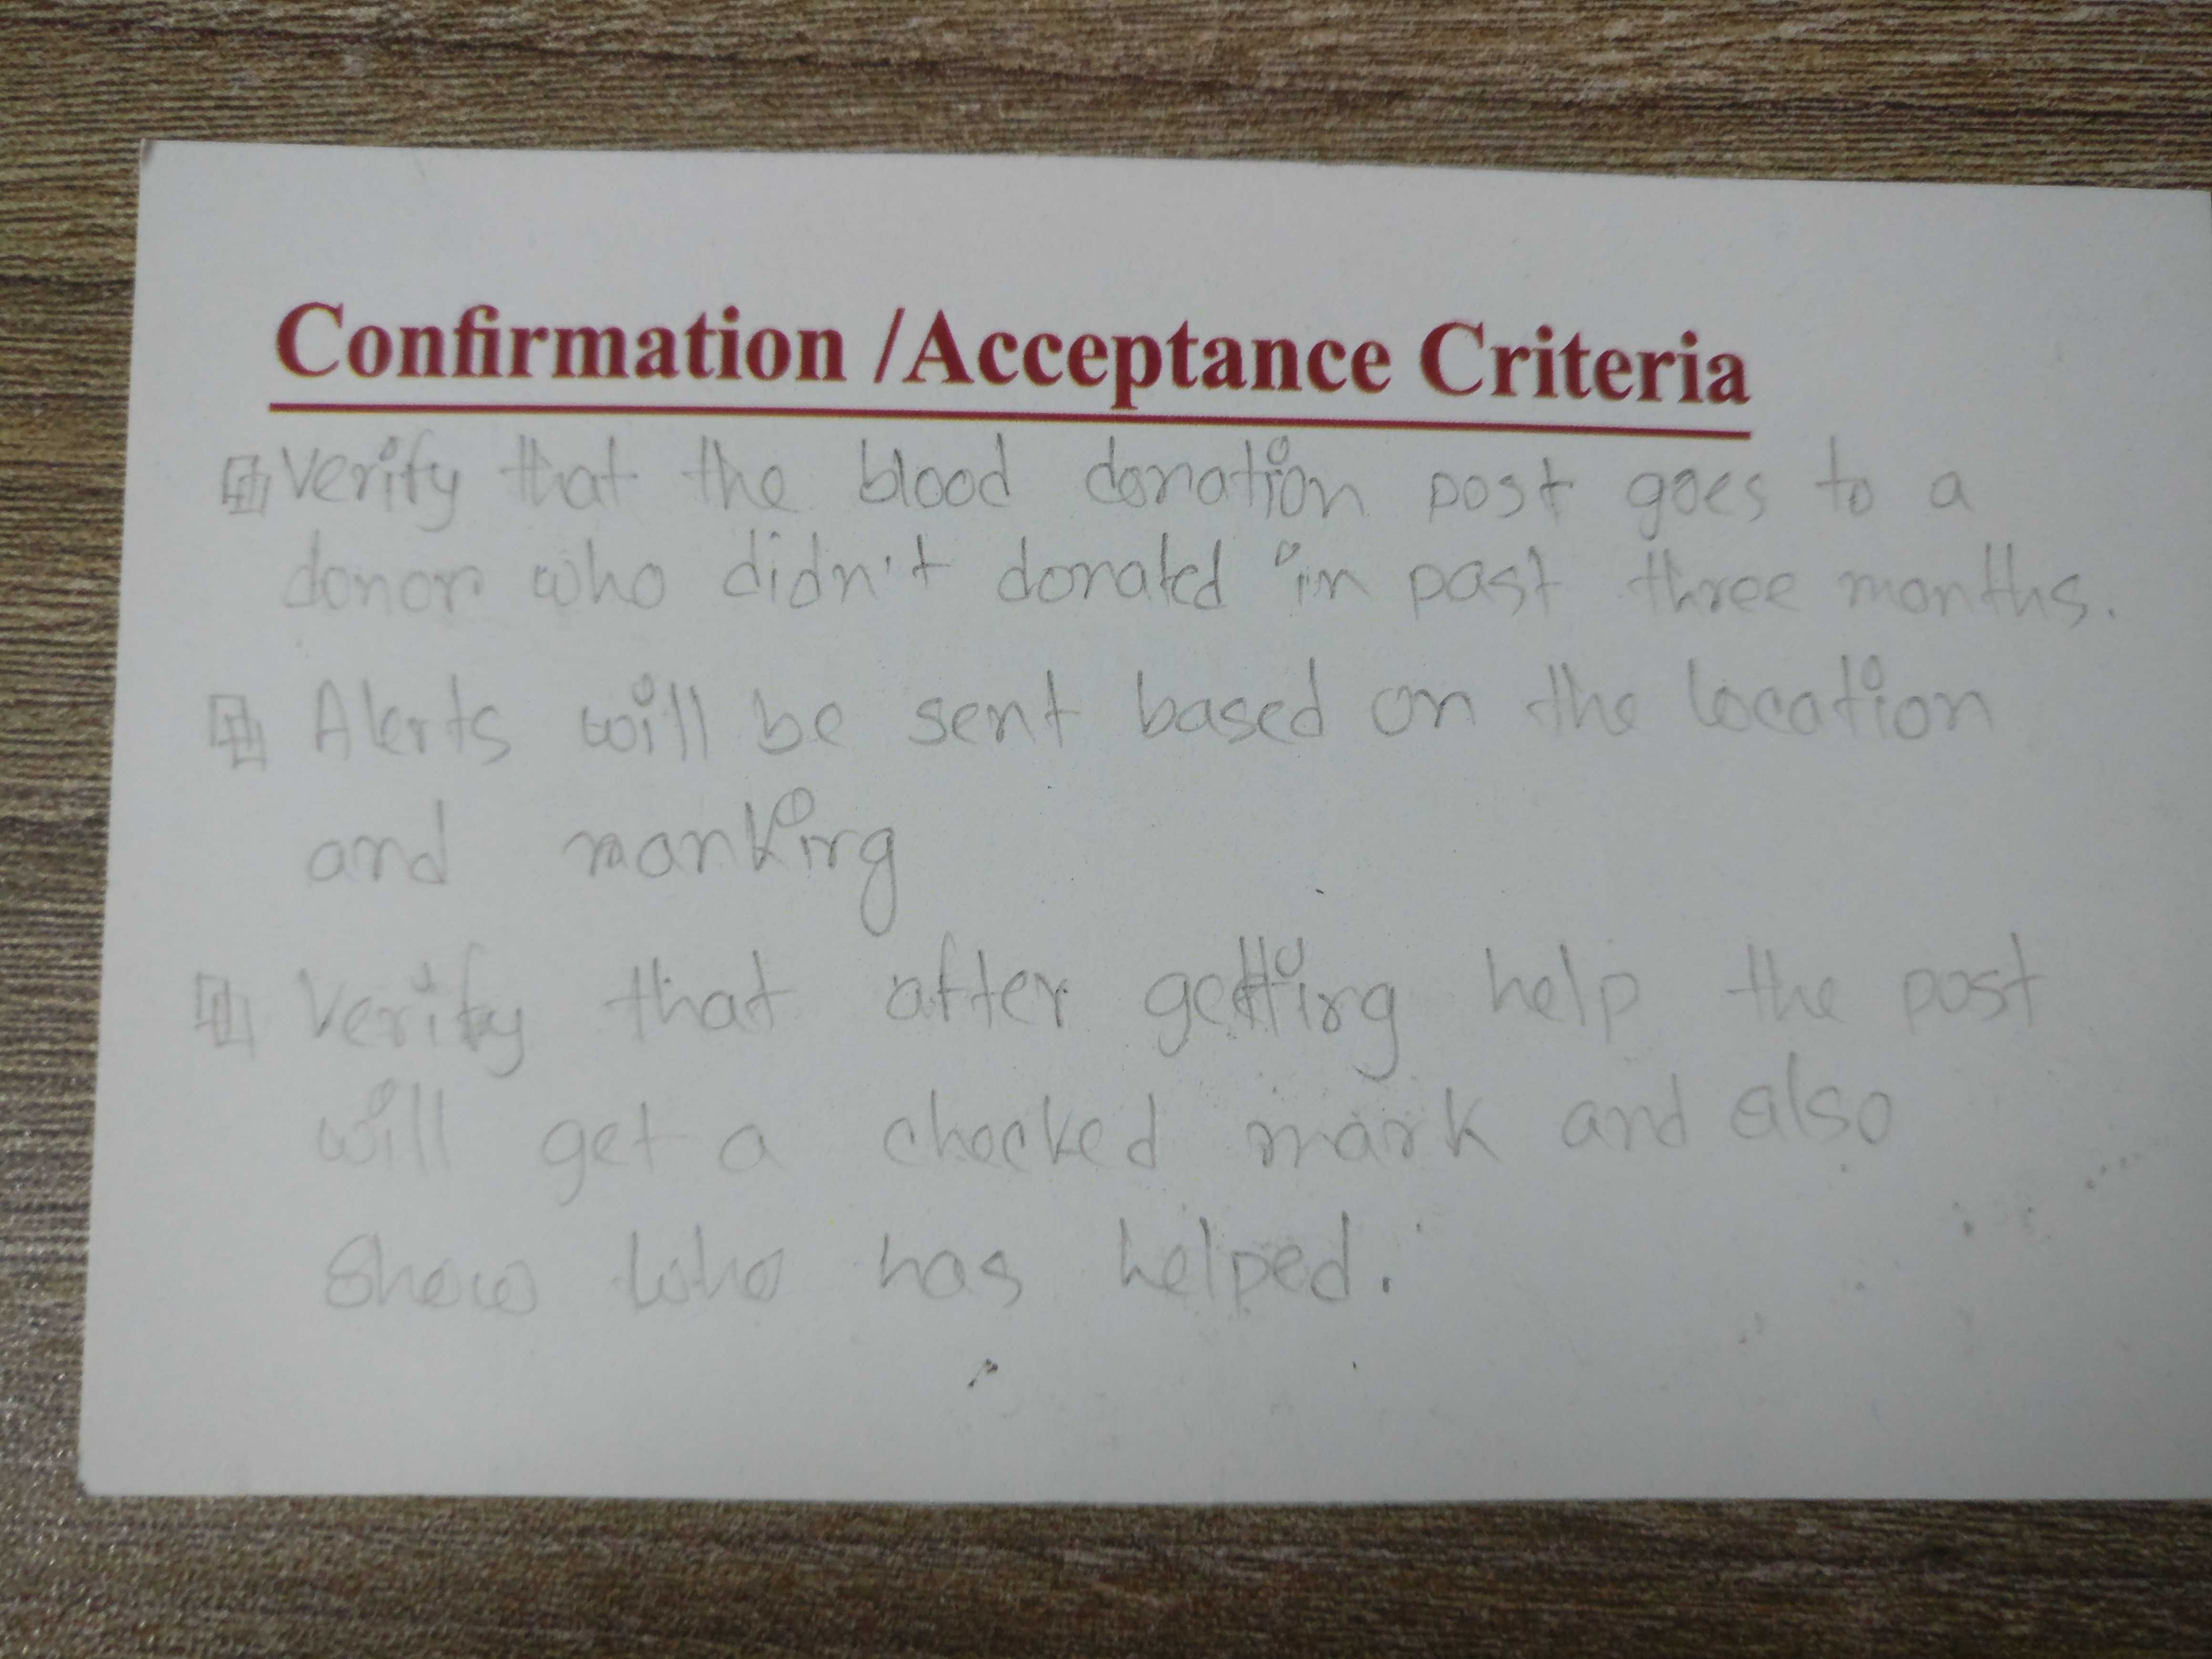 Confirmation /Acceptance Criteria
Verify that the blood donation post goes to a
donor who didn't donated in past three months.
Alerts will be sent based on the location
and
Verify that after getting help the post
will get a checked mark and also
show who has helped.